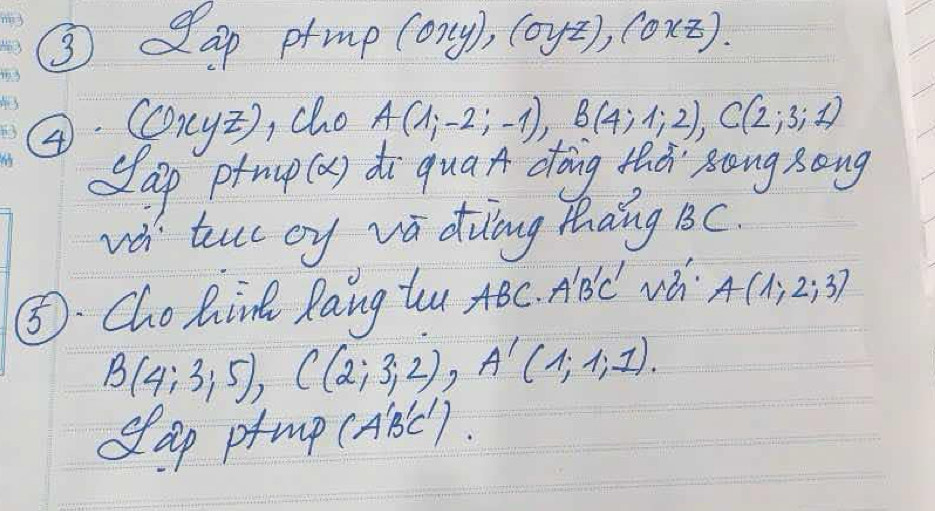 ③ Lập ptmp (oxy), (oyz), (oxz).
④. (Oxyz), cho A(1;-2;-1), B(4;1;2), C(2;3;1)
Lập ptmp(α) đi qua A đồng thời song song
với trục oy và đường thẳng BC.
⑤. Cho hình lăng trụ ABC.A'B'C' với A(1;2;3)
B(4;3;5), C(2;3;2), A'(1;1;1).
Lập ptmp (A'B'C').